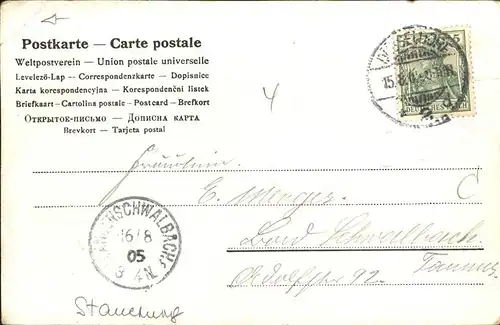 Postkarte — Carte postale
Weltpostverein — Union postale universelle
Levelező-Lap — Correspondenzkarte — Dopisnice
Karta korespondencyjna — Korespondenční listek
Briefkaart - Cartolina postale - Postcard - Brefkort
Открытое-письмо — Дописна карта
Brevkort — Tarjeta postal
5
DEUTSCHES REICH
4
Fräulein
E. Menges
C
Bad Schwalbach
Adolfstr 92.
Taunus
LANGENSCHWALBACH
16/8
05
3-4N.
Stauchung